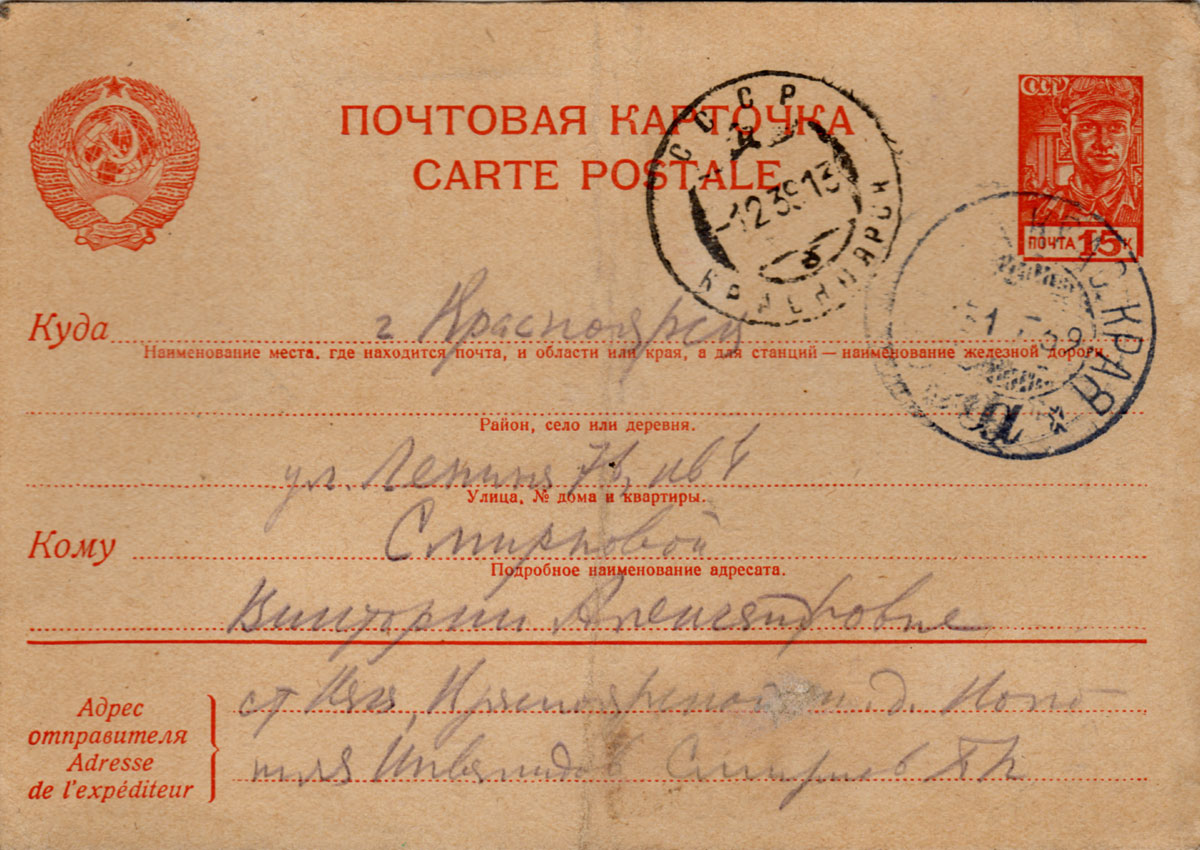 ПОЧТОВАЯ КАРТОЧКА
CARTE POSTALE
СССР
ПОЧТА 15 К
СССР
КРАСНОЯРСК
КРАС. КРАЯ
Куда г Красноярск
Наименование места, где находится почта, и области или края, а для станций — наименование железной дороги.
Район, село или деревня.
ул. Ленина
Улица, № дома и квартиры.
Кому Смирновой
Подробное наименование адресата.
Виктории Александровне
Адрес
отправителя
Adresse
de l'expéditeur
ст Красноярской ж.д.
Инвалидов Смирнов